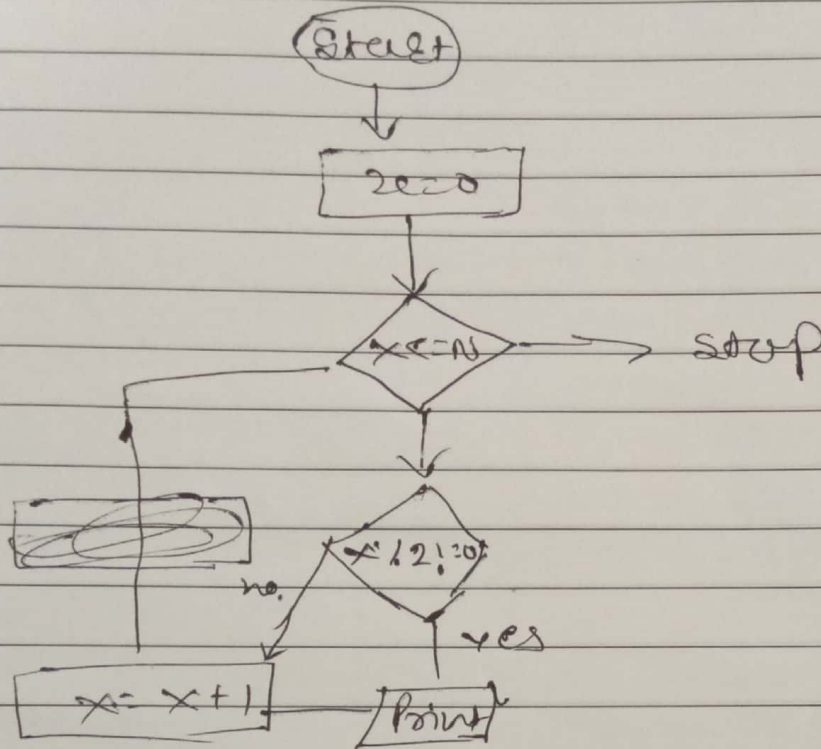 Start
x=0
x<=N
Stop
x%2!=0
no.
yes
x=x+1
Print